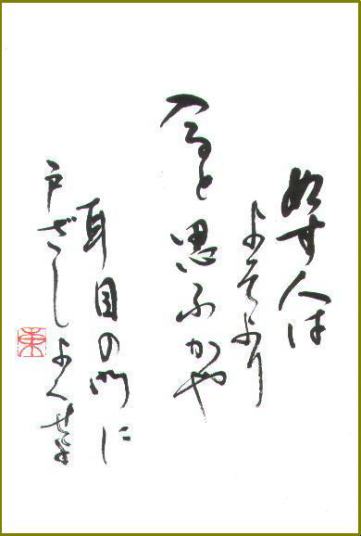 ぬす人は
よそより
入ると思ふかや
耳目の門に
戸ざしよくせよ
東